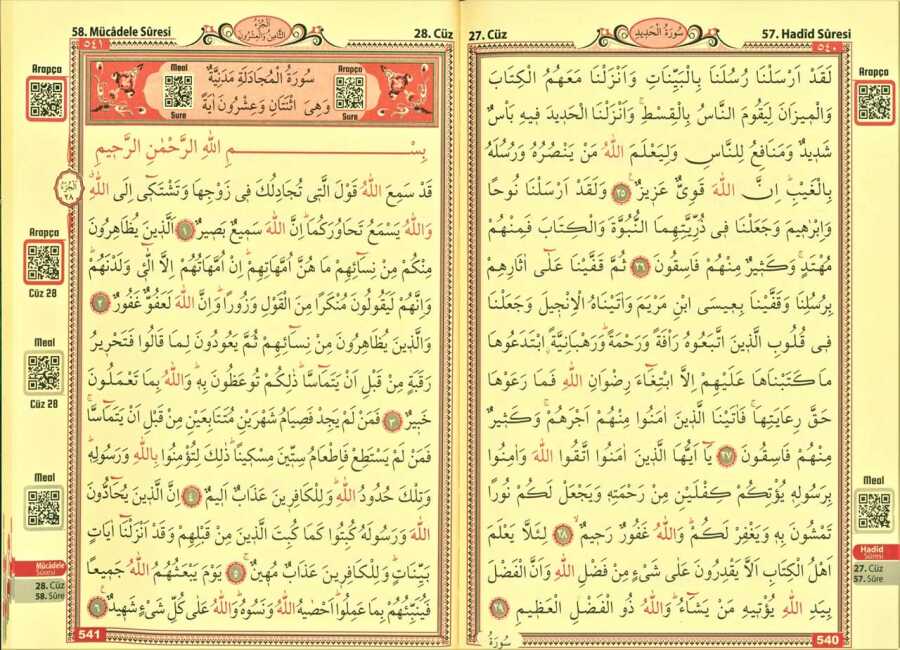 27. Cüz
سُورَةُ الْحَدِيدِ
57. Hadîd Sûresi
٥٤٠
لَقَدْ اَرْسَلْنَا رُسُلَنَا بِالْبَيِّنَاتِ وَاَنْزَلْنَا مَعَهُمُ الْكِتَابَ
وَالْمِيزَانَ لِيَقُومَ النَّاسُ بِالْقِسْطِۚ وَاَنْزَلْنَا الْحَدِيدَ فِيهِ بَأْسٌ
شَدِيدٌ وَمَنَافِعُ لِلنَّاسِ وَلِيَعْلَمَ اللّٰهُ مَنْ يَنْصُرُهُ وَرُسُلَهُ
بِالْغَيْبِۜ اِنَّ اللّٰهَ قَوِىٌّ عَزِيزٌ ۟ ٢٥ وَلَقَدْ اَرْسَلْنَا نُوحًا
وَاِبْرٰهِيمَ وَجَعَلْنَا فِى ذُرِّيَّتِهِمَا النُّبُوَّةَ وَالْكِتَابَ فَمِنْهُمْ
مُهْتَدٍۚ وَكَثِيرٌ مِنْهُمْ فَاسِقُونَ ٢٦ ثُمَّ قَفَّيْنَا عَلٰٓى اٰثَارِهِمْ
بِرُسُلِنَا وَقَفَّيْنَا بِعِيسَى ابْنِ مَرْيَمَ وَاٰتَيْنَاهُ الْاِنْجِيلَ وَجَعَلْنَا
فِى قُلُوبِ الَّذِينَ اتَّبَعُوهُ رَأْفَةً وَرَحْمَةًۜ وَرَهْبَانِيَّةًۨ ابْتَدَعُوهَا
مَا كَتَبْنَاهَا عَلَيْهِمْ اِلَّا ابْتِغَٓاءَ رِضْوَانِ اللّٰهِ فَمَا رَعَوْهَا
حَقَّ رِعَايَتِهَاۚ فَاٰتَيْنَا الَّذِينَ اٰمَنُوا مِنْهُمْ اَجْرَهُمْۚ وَكَثِيرٌ
مِنْهُمْ فَاسِقُونَ ٢٧ يَٓا اَيُّهَا الَّذِينَ اٰمَنُوا اتَّقُوا اللّٰهَ وَاٰمِنُوا
بِرَسُولِهِ يُؤْتِكُمْ كِفْلَيْنِ مِنْ رَحْمَتِهِ وَيَجْعَلْ لَكُمْ نُورًا
تَمْشُونَ بِهِ وَيَغْفِرْ لَكُمْۜ وَاللّٰهُ غَفُورٌ رَحِيمٌۙ ٢٨ لِئَلَّا يَعْلَمَ
اَهْلُ الْكِتَابِ اَلَّا يَقْدِرُونَ عَلٰى شَىْءٍ مِنْ فَضْلِ اللّٰهِ وَاَنَّ الْفَضْلَ
بِيَدِ اللّٰهِ يُؤْتِيهِ مَنْ يَشَٓاءُۜ وَاللّٰهُ ذُو الْفَضْلِ الْعَظِيمِ
سُورَةُ
540
Arapça
Meal
Hadîd
Sûresi
27. Cüz
57. Sûre
58. Mücâdele Sûresi
اَلْجُزْءُ
الثَّامِنُ وَالْعِشْرُونَ
28. Cüz
٥٤١
Meal
Sure
سُورَةُ الْمُجَادَلَةِ مَدَنِيَّةٌ
وَهِىَ اثْنَتَانِ وَعِشْرُونَ اٰيَةً
Arapça
Sure
بِسْمِ اللّٰهِ الرَّحْمٰنِ الرَّحِيمِ
قَدْ سَمِعَ اللّٰهُ قَوْلَ الَّتِى تُجَادِلُكَ فِى زَوْجِهَا وَتَشْتَكِٓى اِلَى اللّٰهِۗ
وَاللّٰهُ يَسْمَعُ تَحَاوُرَكُمَاۜ اِنَّ اللّٰهَ سَمِيعٌ بَصِيرٌ ١ اَلَّذِينَ يُظَاهِرُونَ
مِنْكُمْ مِنْ نِسَٓائِهِمْ مَا هُنَّ اُمَّهَاتِهِمْۜ اِنْ اُمَّهَاتُهُمْ اِلَّا الّٰٓـِٔى وَلَدْنَهُمْۜ
وَاِنَّهُمْ لَيَقُولُونَ مُنْكَرًا مِنَ الْقَوْلِ وَزُورًاۜ وَاِنَّ اللّٰهَ لَعَفُوٌّ غَفُورٌ ٢
وَالَّذِينَ يُظَاهِرُونَ مِنْ نِسَٓائِهِمْ ثُمَّ يَعُودُونَ لِمَا قَالُوا فَتَحْرِيرُ
رَقَبَةٍ مِنْ قَبْلِ اَنْ يَتَمَٓاسَّاۜ ذٰلِكُمْ تُوعَظُونَ بِهِۜ وَاللّٰهُ بِمَا تَعْمَلُونَ
خَبِيرٌ ٣ فَمَنْ لَمْ يَجِدْ فَصِيَامُ شَهْرَيْنِ مُتَتَابِعَيْنِ مِنْ قَبْلِ اَنْ يَتَمَٓاسَّاۚ
فَمَنْ لَمْ يَسْتَطِعْ فَاِطْعَامُ سِتِّينَ مِسْكِينًاۜ ذٰلِكَ لِتُؤْمِنُوا بِاللّٰهِ وَرَسُولِهِۜ
وَتِلْكَ حُدُودُ اللّٰهِۜ وَلِلْكَافِرِينَ عَذَابٌ اَلِيمٌ ٤ اِنَّ الَّذِينَ يُحَٓادُّونَ
اللّٰهَ وَرَسُولَهُ كُبِتُوا كَمَا كُبِتَ الَّذِينَ مِنْ قَبْلِهِمْ وَقَدْ اَنْزَلْنَٓا اٰيَاتٍ
بَيِّنَاتٍۜ وَلِلْكَافِرِينَ عَذَابٌ مُهِينٌۚ ٥ يَوْمَ يَبْعَثُهُمُ اللّٰهُ جَمِيعًا
فَيُنَبِّئُهُمْ بِمَا عَمِلُواۜ اَحْصٰيهُ اللّٰهُ وَنَسُوهُۜ وَاللّٰهُ عَلٰى كُلِّ شَىْءٍ شَهِيدٌ ٦
541
Arapça
اَلْجُزْءُ
٢٨
Arapça
Cüz 28
Meal
Cüz 28
Meal
Mücâdele
Sûresi
28. Cüz
58. Sûre